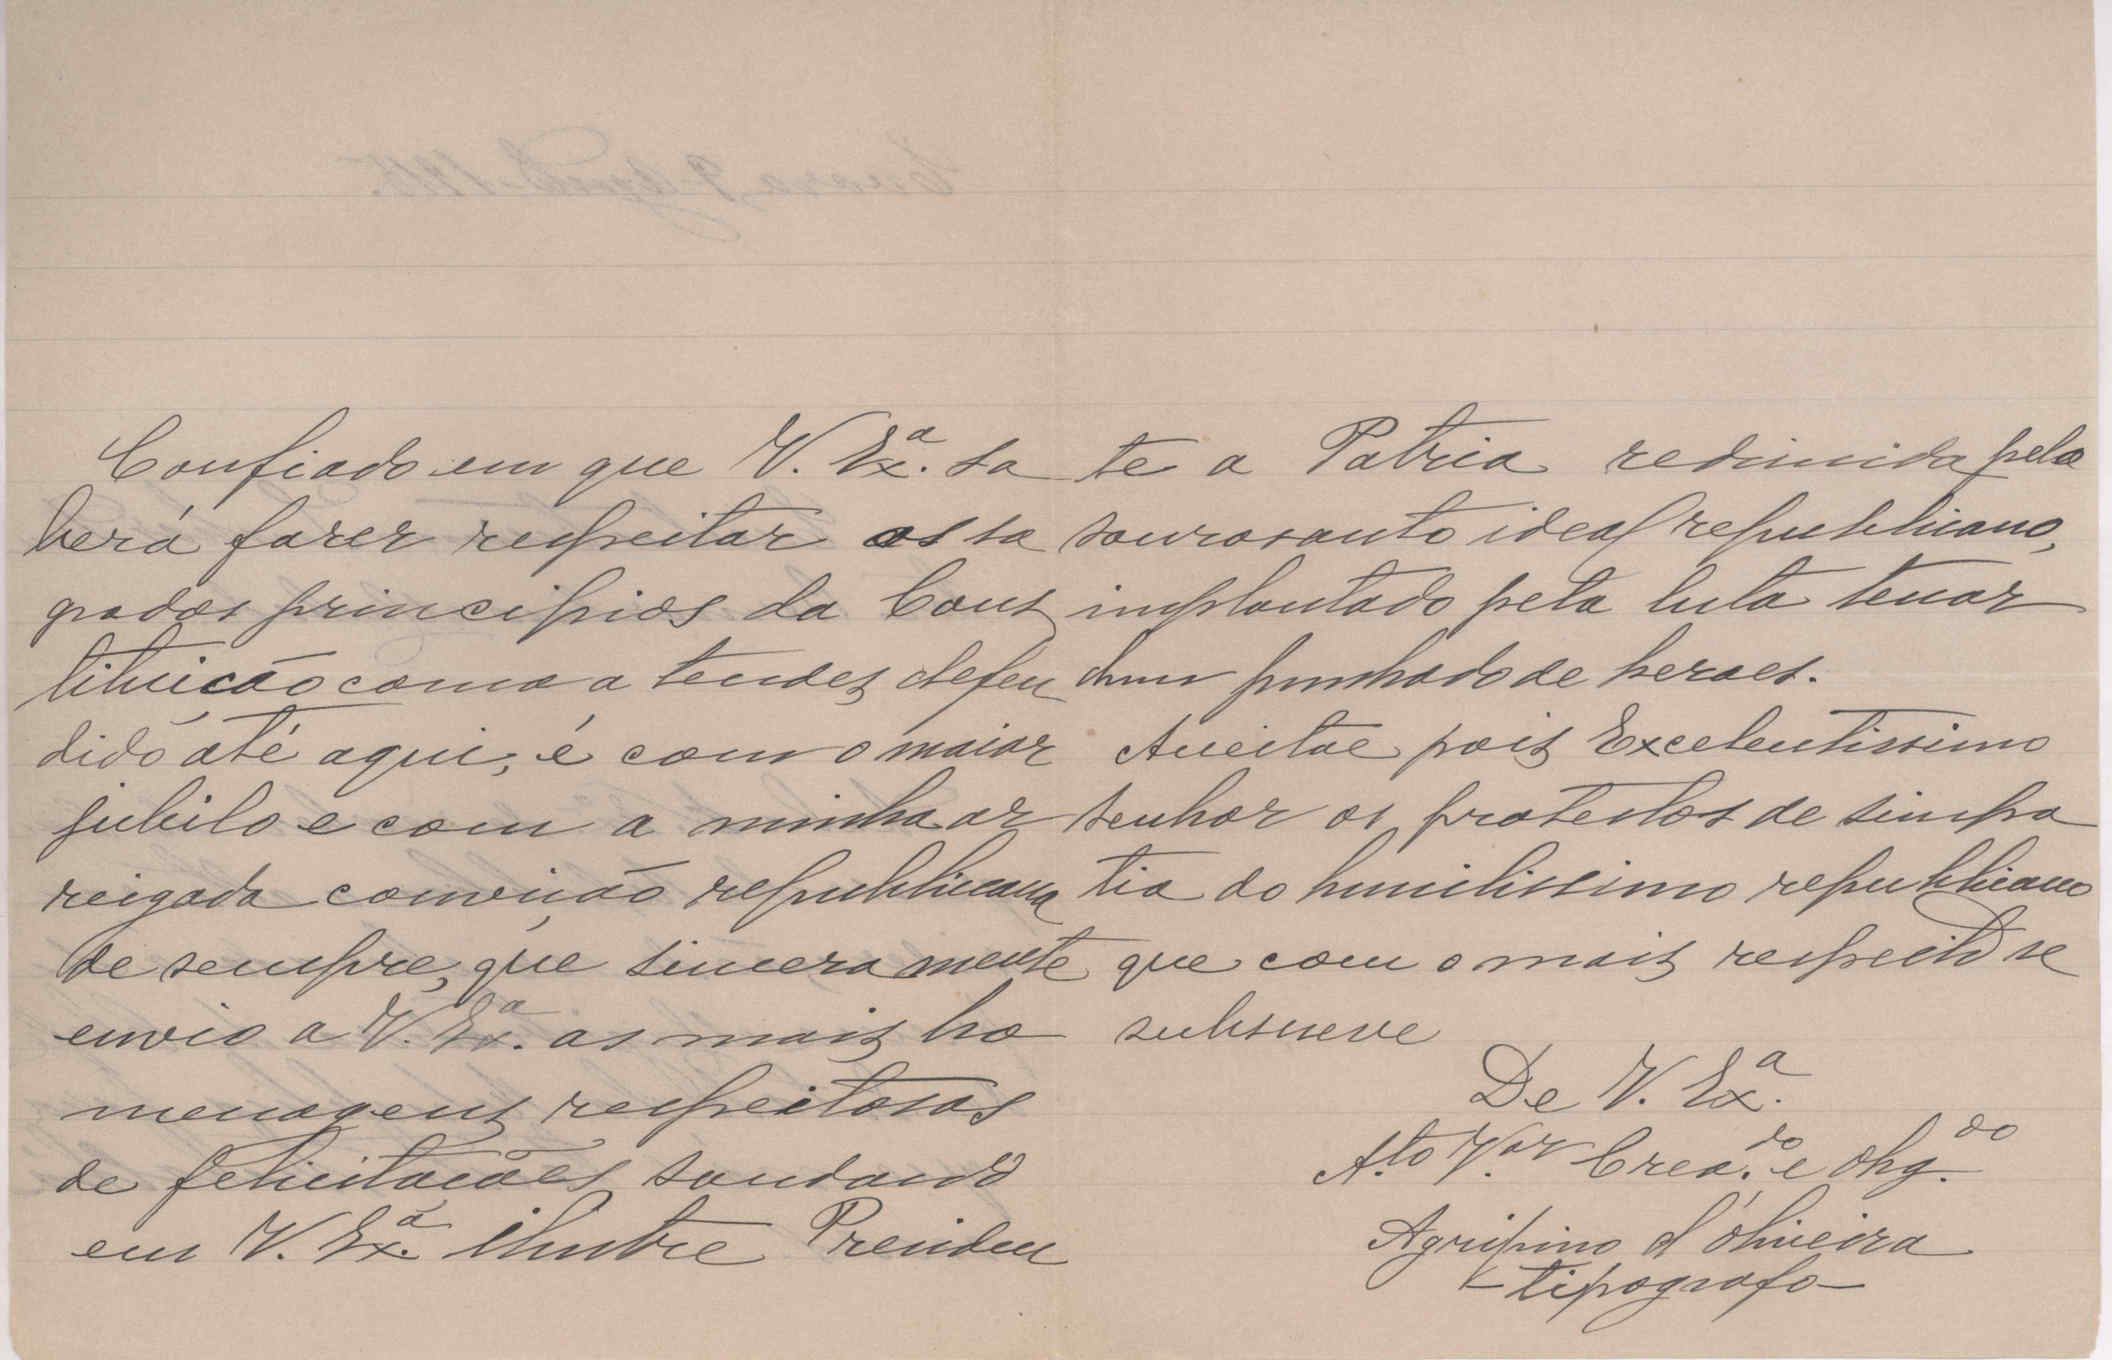 Confiado em que V. Ex.ª sa
berá fazer respeitar os sa
grados principios da Cons
tituição como a tendes defen
dido até aqui, é com o maior
jubilo e com a minha ar
reigada convição republicana
de sempre, que sinceramente
envio a V. Ex.ª as mais ho
menagens respeitosas
de felicitacões saudando
em V. Ex.ª ilustre Presiden
te a Patria redimida pelo
sacrosanto ideal republicano,
implantado pela luta tenaz
dum punhado de heroes.
Aceitae pois Excelentissimo
Senhor os protestos de simpa
tia do humilissimo republicano
que com o mais respeito se
subscreve
De V. Ex.ª
A.to V.or Crea.do e Obg.do
Agripino d'Oliveira
- tipografo -